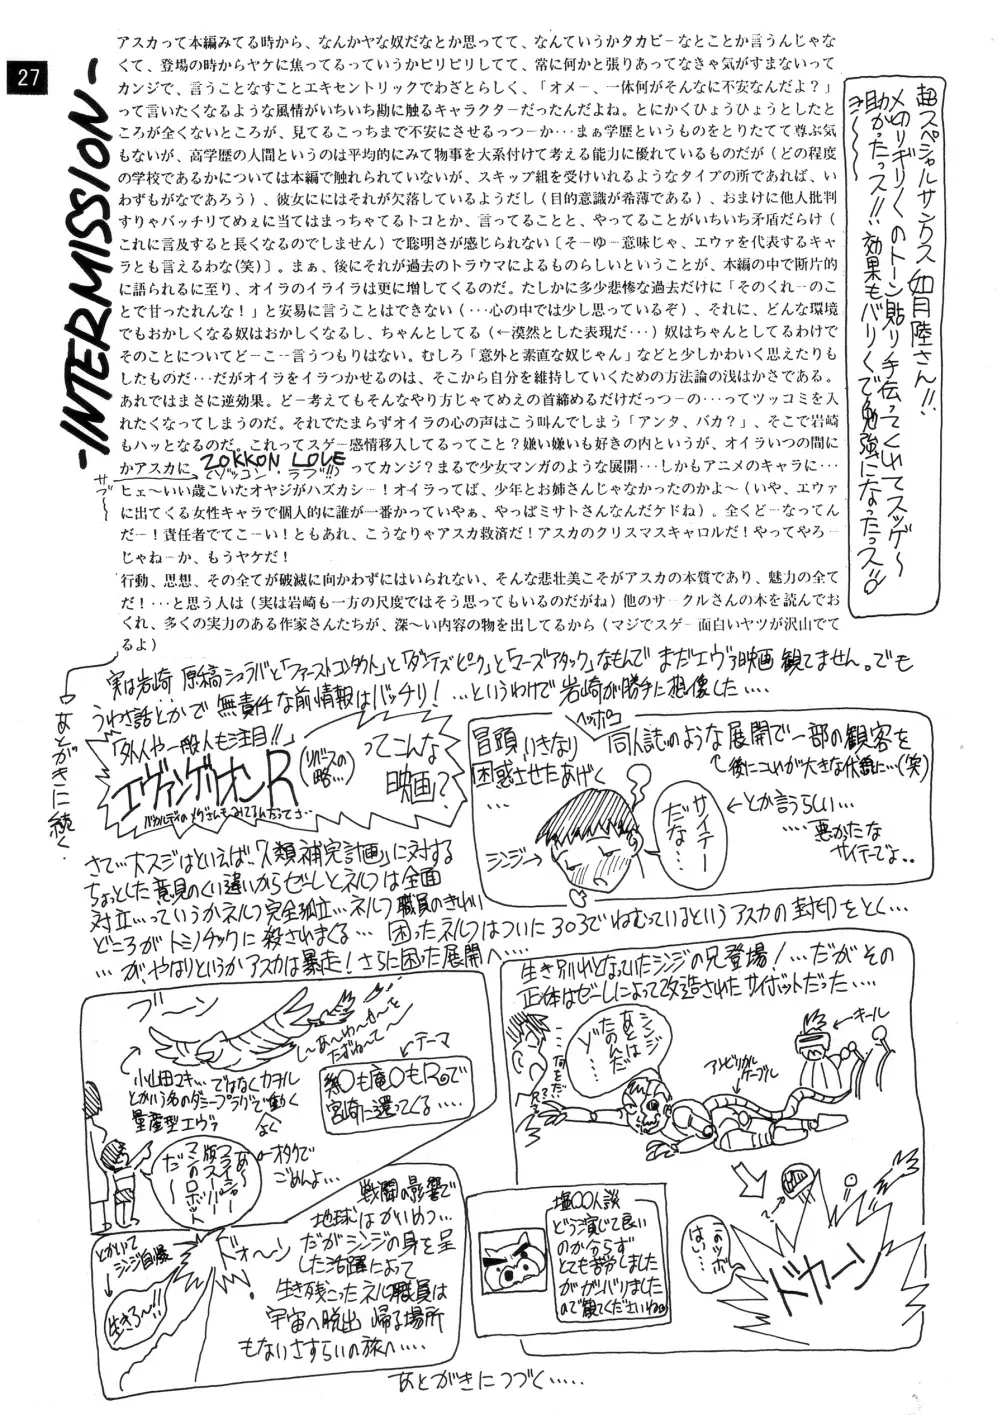 27
-INTERMISSION-
アスカって本編みてる時から、なんかヤな奴だなとか思ってて、なんていうかタカビーなとことか言うんじゃな
くて、登場の時からヤケに焦ってるっていうかピリピリしてて、常に何かと張りあってなきゃ気がすまないって
カンジで、言うことなすことエキセントリックでわざとらしく、「オメー、一体何がそんなに不安なんだよ？」
って言いたくなるような風情がいちいち勘に触るキャラクターだったんだよね。とにかくひょうひょうとしたと
ころが全くないところが、見てるこっちまで不安にさせるっつーか･･･まぁ学歴というものをとりたてて尊ぶ気
もないが、高学歴の人間というのは平均的にみて物事を大系付けて考える能力に優れているものだが（どの程度
の学校であるかについては本編で触れられていないが、スキップ組を受けいれるようなタイプの所であれば、い
わずもがなであろう）、彼女ににはそれが欠落しているようだし（目的意識が希薄である）、おまけに他人批判
すりゃバッチリてめぇに当てはまっちゃてるトコとか、言ってることと、やってることがいちいち矛盾だらけ（
これに言及すると長くなるのでしません）で聡明さが感じられない〔そーゆー意味じゃ、エヴァを代表するキャ
ラとも言えるわな(笑)〕。まぁ、後にそれが過去のトラウマによるものらしいということが、本編の中で断片的
に語られるに至り、オイラのイライラは更に増してくるのだ。たしかに多少悲惨な過去だけに「そのくれーのこ
とで甘ったれんな！」と安易に言うことはできない（･･･心の中では少し思っているぞ）、それに、どんな環境
でもおかしくなる奴はおかしくなるし、ちゃんとしてる（←漠然とした表現だ･･･）奴はちゃんとしてるわけで
そのことについてどーこー言うつもりはない。むしろ「意外と素直な奴じゃん」などと少しかわいく思えたりも
したものだ･･･だがオイラをイラつかせるのは、そこから自分を維持していくための方法論の浅はかさである。
あれではまさに逆効果。どー考えてもそんなやり方じゃてめえの首締めるだけだっつーの･･･ってツッコミを入
れたくなってしまうのだ。それでたまらずオイラの心の声はこう叫んでしまう「アンタ、バカ？」、そこで岩崎
もハッとなるのだ。これってスゲー感情移入してるってこと？嫌い嫌いも好きの内というが、オイラいつの間に
かアスカに ZOKKON LOVE ってカンジ？まるで少女マンガのような展開･･･しかもアニメのキャラに･･･
ゾッコン・ラブ!!
ヒェ～いい歳こいたオヤジがハズカシー！オイラってば、少年とお姉さんじゃなかったのかよ～(いや、エヴァ
に出てくる女性キャラで個人的に誰が一番かっていやぁ、やっぱミサトさんなんだケドね）。全くどーなってん
だー！責任者でてこーい！ともあれ、こうなりゃアスカ救済だ！アスカのクリスマスキャロルだ！やってやろー
じゃねーか、もうヤケだ！
行動、思想、その全てが破滅に向かわずにはいられない、そんな悲壮美こそがアスカの本質であり、魅力の全て
だ！･･･と思う人は（実は岩崎も一方の尺度ではそう思ってもいるのだがね）他のサークルさんの本を読んでお
くれ、多くの実力のある作家さんたちが、深～い内容の物を出してるから（マジでスゲー面白いヤツが沢山でて
るよ）
サブ～
超スペシャルサンクス 如月陸さん!!
〆切りギリギリのトーン貼り手伝ってくれてスッゲ～
助かったっス!! 効果もバリバリで勉強になったっス
あとがきに続く
実は岩崎 原稿シュラバと「ファーストコンタクト」と「ダンテズピーク」と「マーズアタック」なもんで まだエヴァ映画 観てません。でも
うわさ話とかで 無責任な前情報はバッチリ！…というわけで 岩崎が勝手に想像した….
「外人や一般人も注目!!」
エヴァンゲリオンR
(リバースの略…)
ってこんな映画？
冒頭いきなりヘッポコ同人誌のような展開で一部の観客を
困惑させたあげく…
後にこれが大きな伏線に…(笑)
サイテーだな…
←とか言うらしい…
….悪かたな
サイテーでよ..
シンジ→
さて…大スジはといえば「人類補完計画」に対する
ちょっとした意見のくい違いからゼーレとネルフは全面
対立…っていうかネルフ完全孤立…ネルフ職員のきれい
どころがトミノチックに殺されまくる… 困ったネルフはついに303でねむっているというアスカの封印をとく…
…が、やはりというかアスカは暴走！さらに困った展開へ….
ブーン
小山田マキ…ではなくカヲル
とかいう名のダミープラグで動く
量産型エヴァ
←テーマ
宮崎に還ってくる….
←オタクで
ごめんよ…
とかいって
シンジ自爆
生きろ～!!
ドォーン
戦闘の影響で
地球はかいめつ…
だがシンジの身を呈
した活躍によって
生き残こったネルフ職員は
宇宙へ脱出 帰る場所
もないさすらいの旅へ….
生き別れとなっていたシンジの兄登場！…だがその
正体はゼーレによって改造されたサイボットだった….
シンジ
あとは
たのんだ
ゾ…
アンビリカル
ケーブル
←キール
塩〇〇人談
どう演じて良い
のか分らず
とても苦労しました
がガンバりました
ので観てくださいね
このツボ
はい…
ドカーン
あとがきにつづく…..